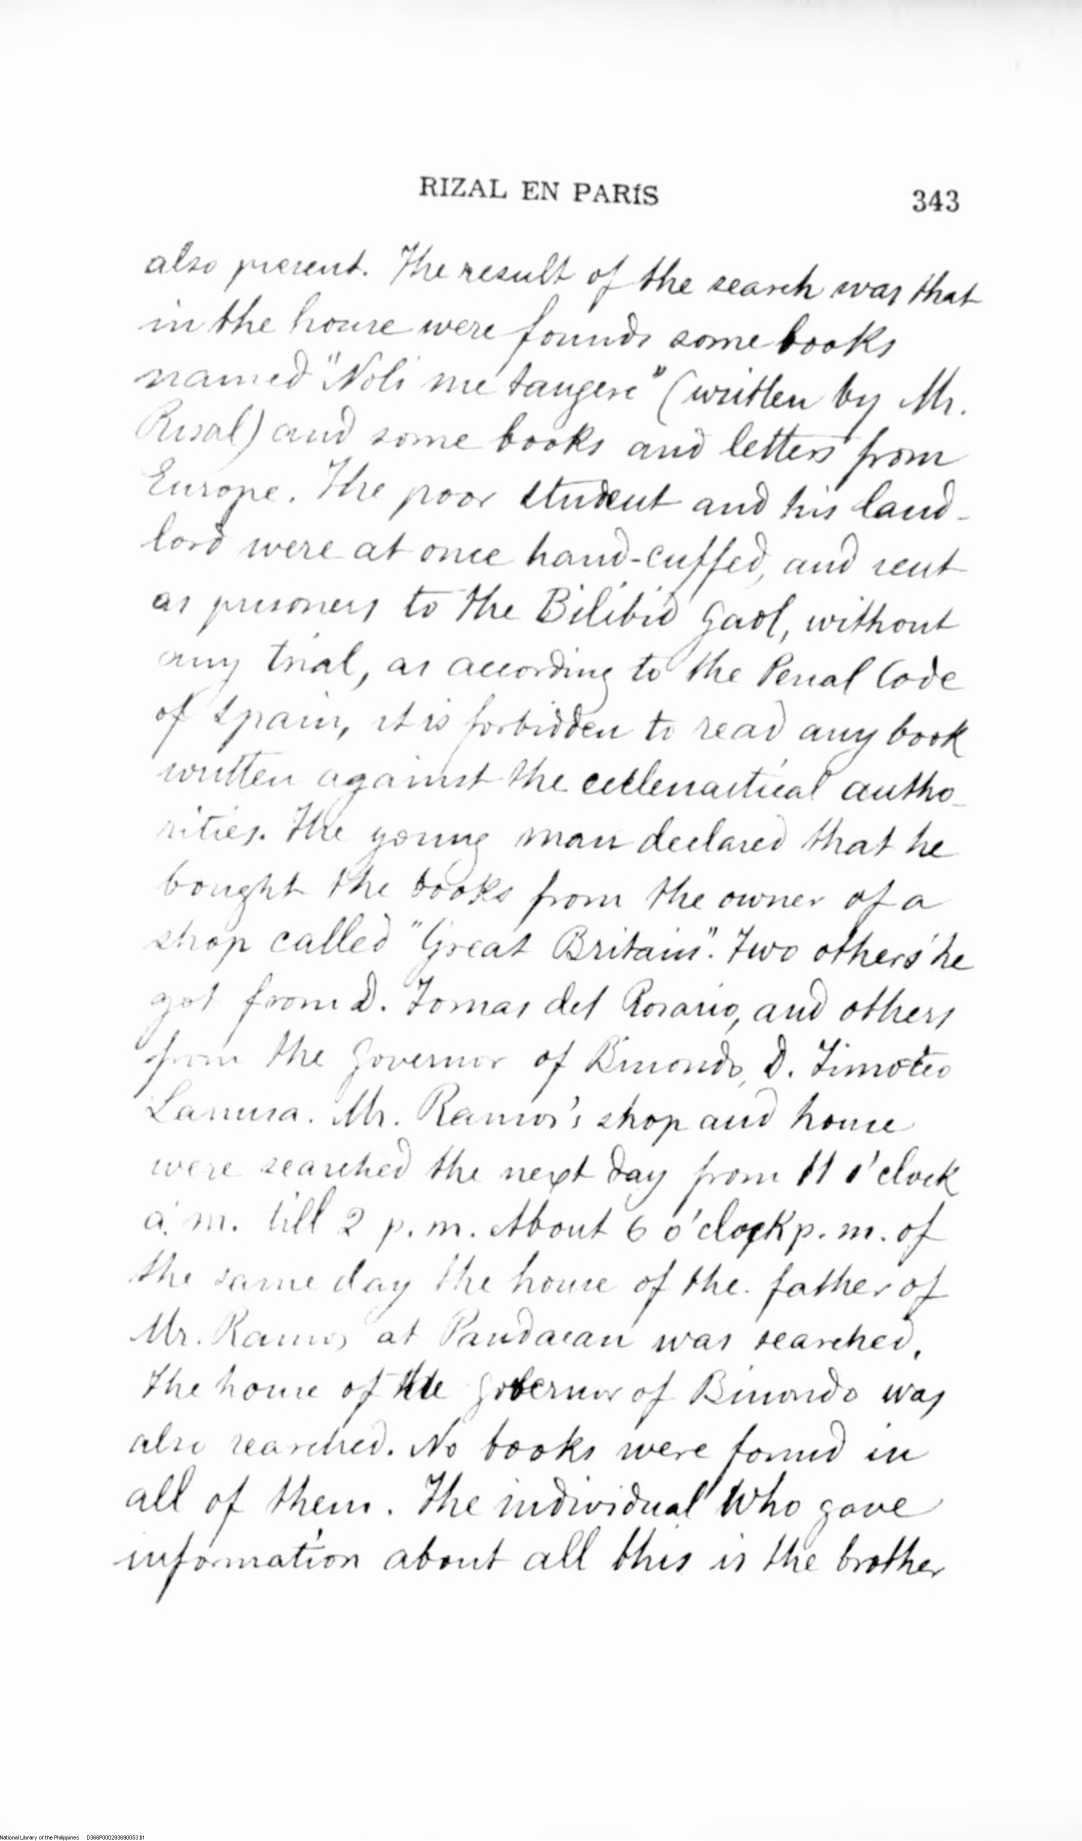 RIZAL EN PARÍS 343
also present. The result of the search was that
in the house were founds some books
named "Noli me tangere" (written by Mr.
Risal) and some books and letters from
Europe. The poor student and his land-
lord were at once hand-cuffed, and sent
as prisoners to the Bilibid Gaol, without
any trial, as according to the Penal Code
of Spain, it is forbidden to read any book
written against the ecclesiastical autho-
rities. The young man declared that he
bought the books from the owner of a
shop called "Great Britain". Two others he
got from D. Tomas del Rosario, and others
from the Governor of Binondo, D. Timoteo
Lanuza. Mr. Ramos's shop and house
were searched the next day from 11 o'clock
a. m. till 2 p. m. About 6 o'clock p. m. of
the same day the house of the father of
Mr. Ramos at Pandacan was searched.
The house of the gobernor of Binondo was
also searched. No books were found in
all of them. The individual who gave
information about all this is the brother
National Library of the Philippines